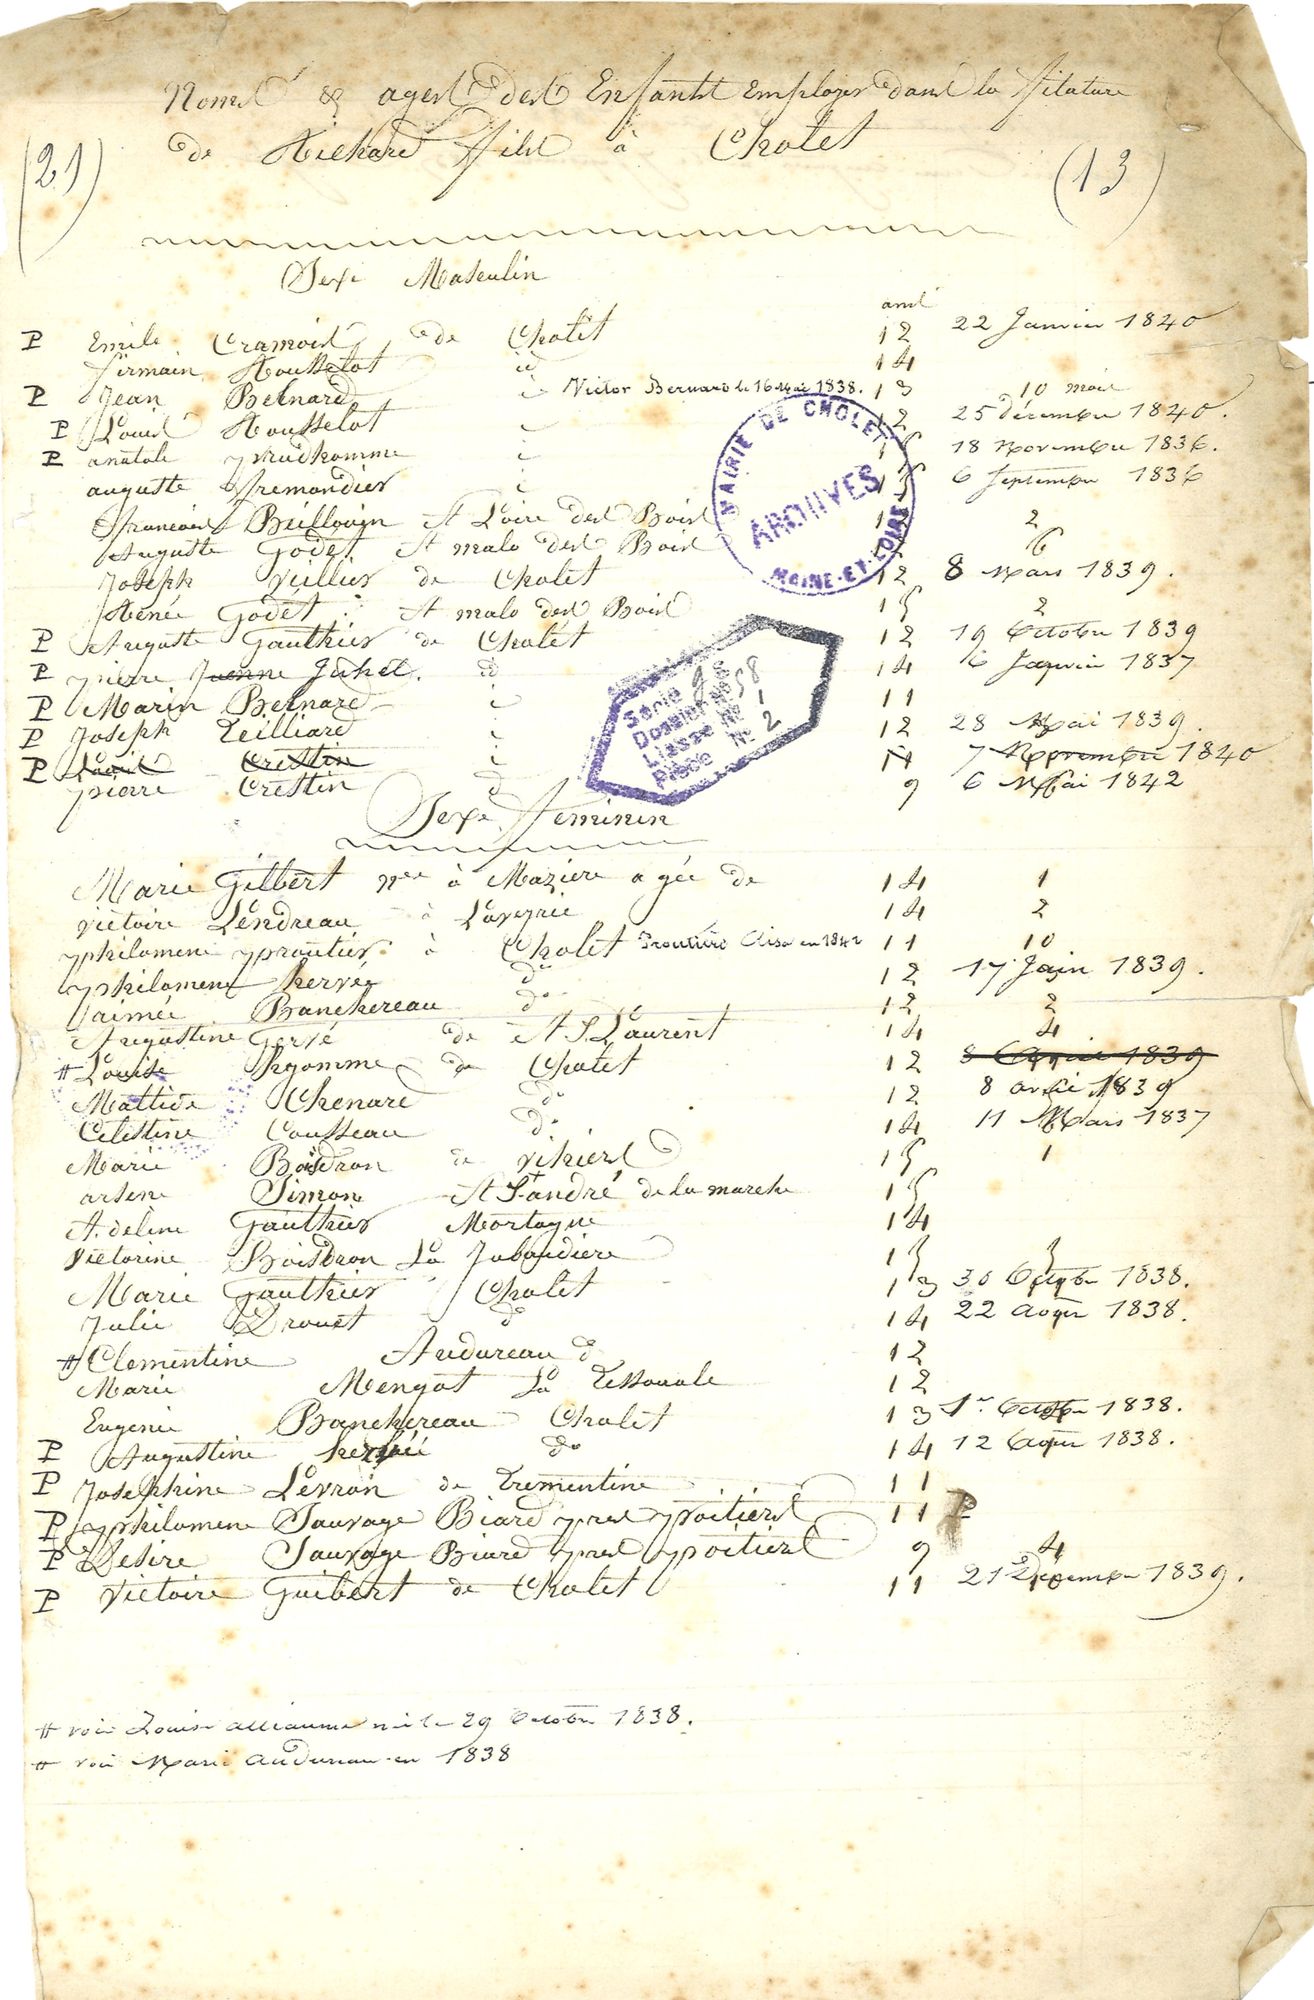 Noms & ages des Enfants Employer dans la filature
de Richard fils à Cholet
(21)
(13)
Sexe Masculin
ans
P Emile Cramois de Cholet 12 22 Janvier 1840
firmain Rousselot id 14
P Jean Bernard i Victor Bernard le 16 Mai 1838. 13 10 mois
P Louis Rousselot i 12 25 décembre 1840.
P anatole prudhomme i 18 Novembre 1836.
auguste fremondier i 15 6 Septembre 1836
francois Brillouin St Loire des Bois 2
Auguste Godet St malo des Bois 6
Joseph Veillier de Cholet 12 8 Mars 1839.
Renée Godet St malo des Bois 15 2
P Auguste Gauthier de Cholet 12 19 Octobre 1839
P pierre Juhel. id 14 6 Janvier 1837
P Marin Bernard i 11
P Joseph Teilliard i 12 28 Mai 1839
P Louis Crestin i 11 7 Novembre 1840
piere Crettin d 9 6 Mai 1842
Sexe feminin
Marie Gilbert née à Maziere agée de 14 1
victoire Lendreau à 14 2
philomene proutier à Cholet en 1842 11 10
philomene hervée do 12 17 Juin 1839.
aimée Banchereau do 12 2
Augustine Gervé de St S. Laurent 14 4
# Louise de Cholet 12 8 Avril 1839
Mattide Chenard do 12 8 avril 1839
Celestine Cousseau do 14 11 Mars 1837
Marie Boisdron de vihiers 15 1
arsene Simon St S. andré de la marche 15
Adeline Gauthier Mortagne 14
Victorine Boisdron La Jubaudiere 15 3
Marie Gauthier Cholet 13 30 Octobre 1838.
Julie Drouet d 14 22 Aout 1838.
# Clementine Audureau d 12
Marie Mengot La Tessoualle 12
Eugenie Banchereau Cholet 13 1er Octobre 1838.
P Augustine do 14 12 Aout 1838.
P Josephine Levron de Trementine 11
P philomene Sauvage Biard pres poitiers 11 P
P Desire Sauvage Biard pres poitiers 9 4
P Victoire Guibert de Cholet 11 21 Decembre 1839.
# voir Louise alliaume née le 29 Octobre 1838.
# voir Marie Audureau en 1838
MAIRIE DE CHOLET
ARCHIVES
MAINE-ET-LOIRE
Série
Dossier Nº 58
Liasse Nº 1
Pièce Nº 2